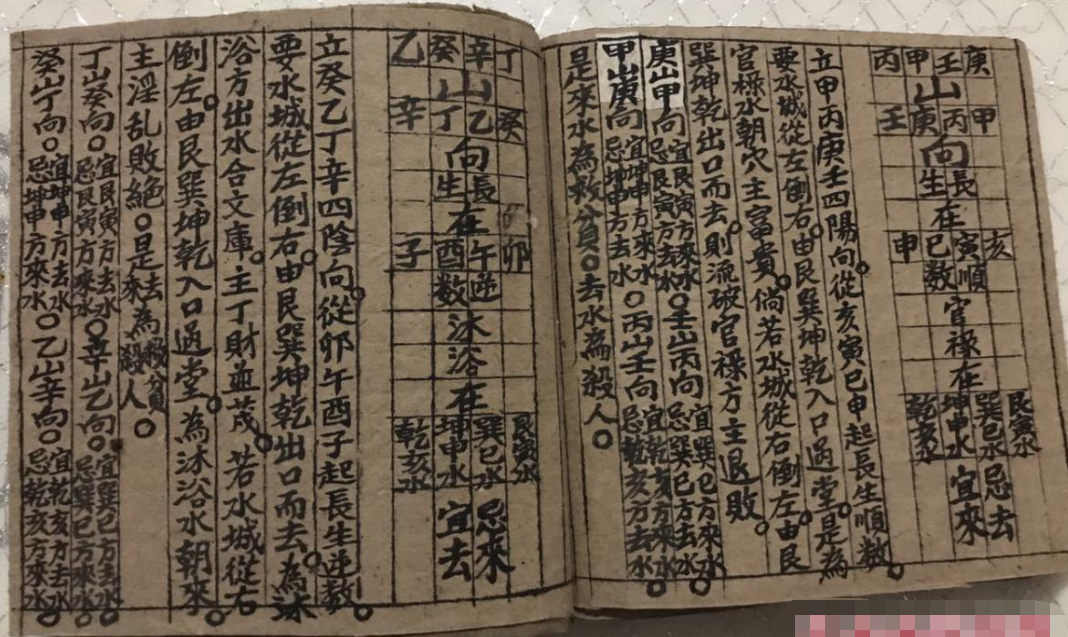 庚壬甲丙
山
甲丙庚壬
向
長生
在
亥寅巳申
順數
官
祿
在
艮寅水
巽巳水
坤申水
乾亥水
忌去
宜來
立甲丙庚壬四陽向。從亥寅巳申起長生順數。
要水城從左倒右。由艮巽坤乾入口過堂。是為
官祿水朝穴主富貴。倘若水城從右倒左。由艮
巽坤乾出口而去。則流破官祿方主退敗。
庚山甲向宜艮寅方來水忌艮寅方去水。壬山丙向宜巽巳方來水忌巽巳方去水。
甲山庚向宜坤申方來水忌坤申方去水。丙山壬向宜乾亥方來水忌乾亥方去水。
是來水為救貧。去水為殺人。
丁辛癸乙
山
癸乙丁辛
向
長生
在
卯午酉子
逆數
沐
浴
在
艮寅水
巽巳水
坤申水
乾亥水
忌來
宜去
立癸乙丁辛四陰向。從卯午酉子起長生逆數。
要水城從左倒右。由艮巽坤乾出口而去。為沐
浴方出水合文庫。主丁財並茂。若水城從右
倒左。由艮巽坤乾入口過堂。為沐浴水朝來。
主淫乱敗絕。是去來為救貧殺人。
丁山癸向。宜艮寅方去水忌艮寅方來水。辛山乙向。宜巽巳方去水忌巽巳方來水。
癸山丁向。宜坤申方去水忌坤申方來水。乙山辛向。宜乾亥方去水忌乾亥方來水。